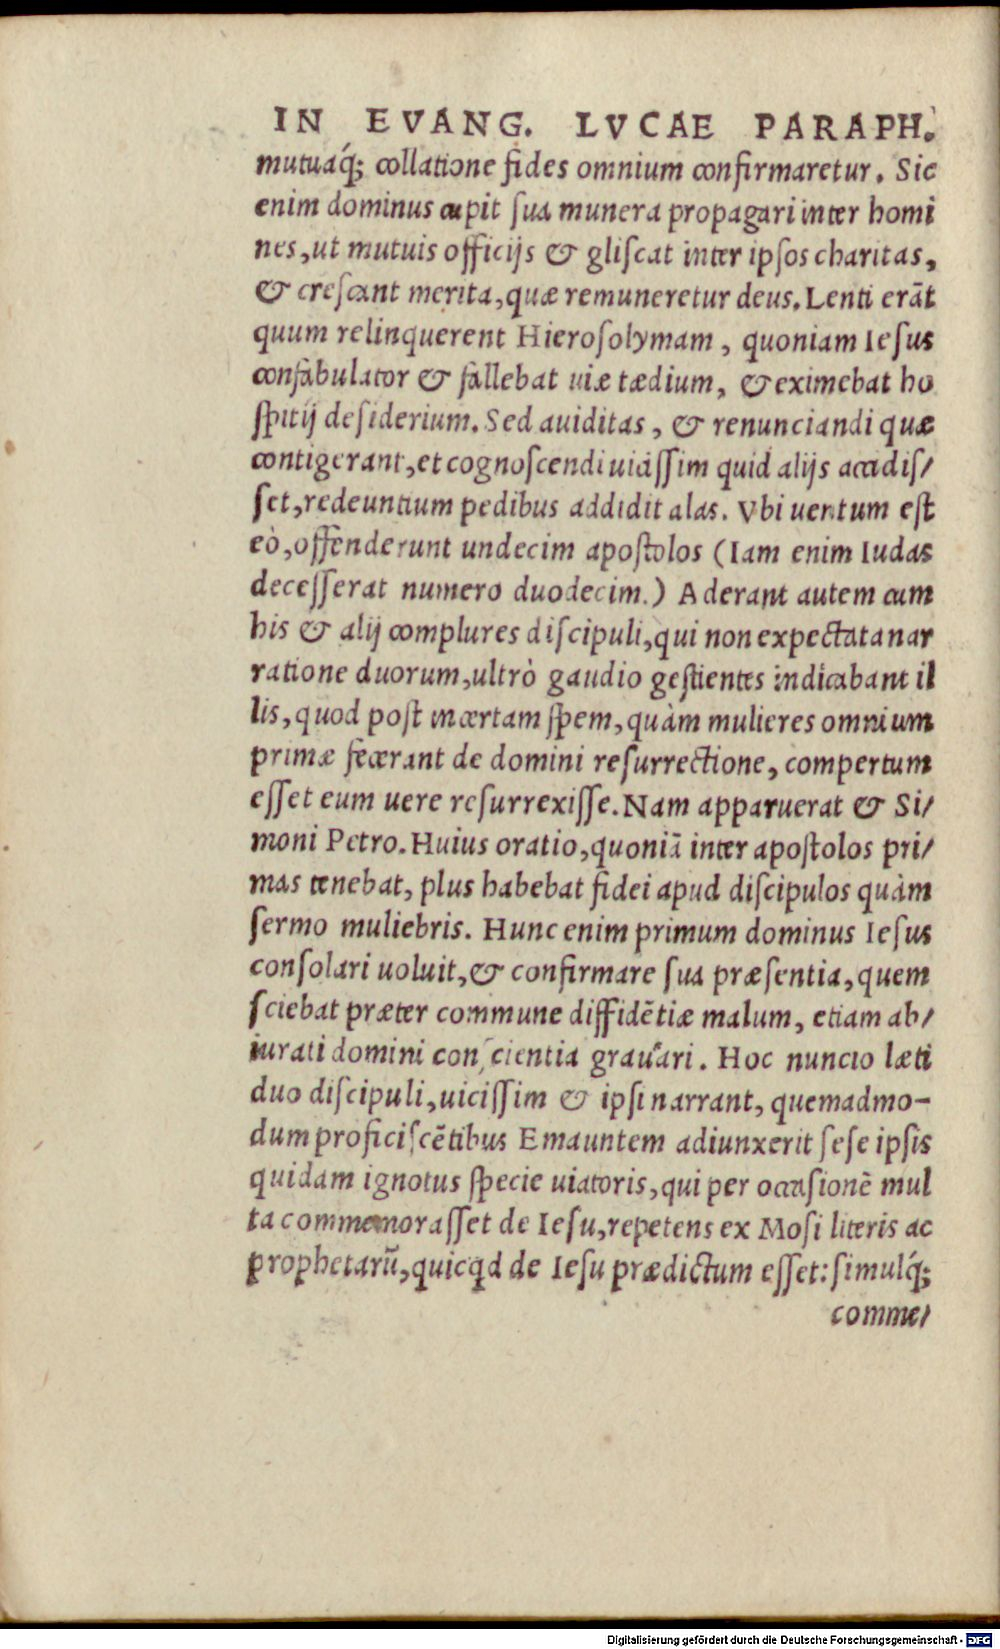 IN EVANG. LVCAE PARAPH.
mutuaq́; collatione fides omnium confirmaretur. Sic
enim dominus cupit ſua munera propagari inter homi
nes, ut mutuis officijs & gliſcat inter ipſos charitas,
& creſcant merita, quæ remuneretur deus. Lenti erãt
quum relinquerent Hieroſolymam, quoniam Ieſus
confabulator & fallebat uiæ tædium, & eximebat ho
ſpitij deſiderium. Sed auiditas, & renunciandi quæ
contigerant, et cognoſcendi uiciſſim quid alijs accidiſ/
ſet, redeuntium pedibus addidit alas. Vbi uentum eſt
eò, offenderunt undecim apoſtolos (Iam enim Iudas
deceſſerat numero duodecim.) Aderant autem cum
his & alij complures diſcipuli, qui non expectata nar
ratione duorum, ultrò gaudio geſtientes indicabant il
lis, quod poſt incertam ſpem, quàm mulieres omnium
primæ fecerant de domini reſurrectione, compertum
eſſet eum uere reſurrexiſſe. Nam apparuerat & Si/
moni Petro. Huius oratio, quoniã inter apoſtolos pri/
mas tenebat, plus habebat fidei apud diſcipulos quàm
ſermo muliebris. Hunc enim primum dominus Ieſus
conſolari uoluit, & confirmare ſua præſentia, quem
ſciebat præter commune diffidẽtiæ malum, etiam ab/
iurati domini conſcientia grauari. Hoc nuncio læti
duo diſcipuli, uiciſſim & ipſi narrant, quemadmo-
dum proficiſcẽtibus Emauntem adiunxerit ſeſe ipſis
quidam ignotus ſpecie uiatoris, qui per occaſionẽ mul
ta commemoraſſet de Ieſu, repetens ex Moſi literis ac
prophetarũ, quicqd de Ieſu prædictum eſſet: ſimulq́;
comme/
Digitalisierung gefördert durch die Deutsche Forschungsgemeinschaft - DFG